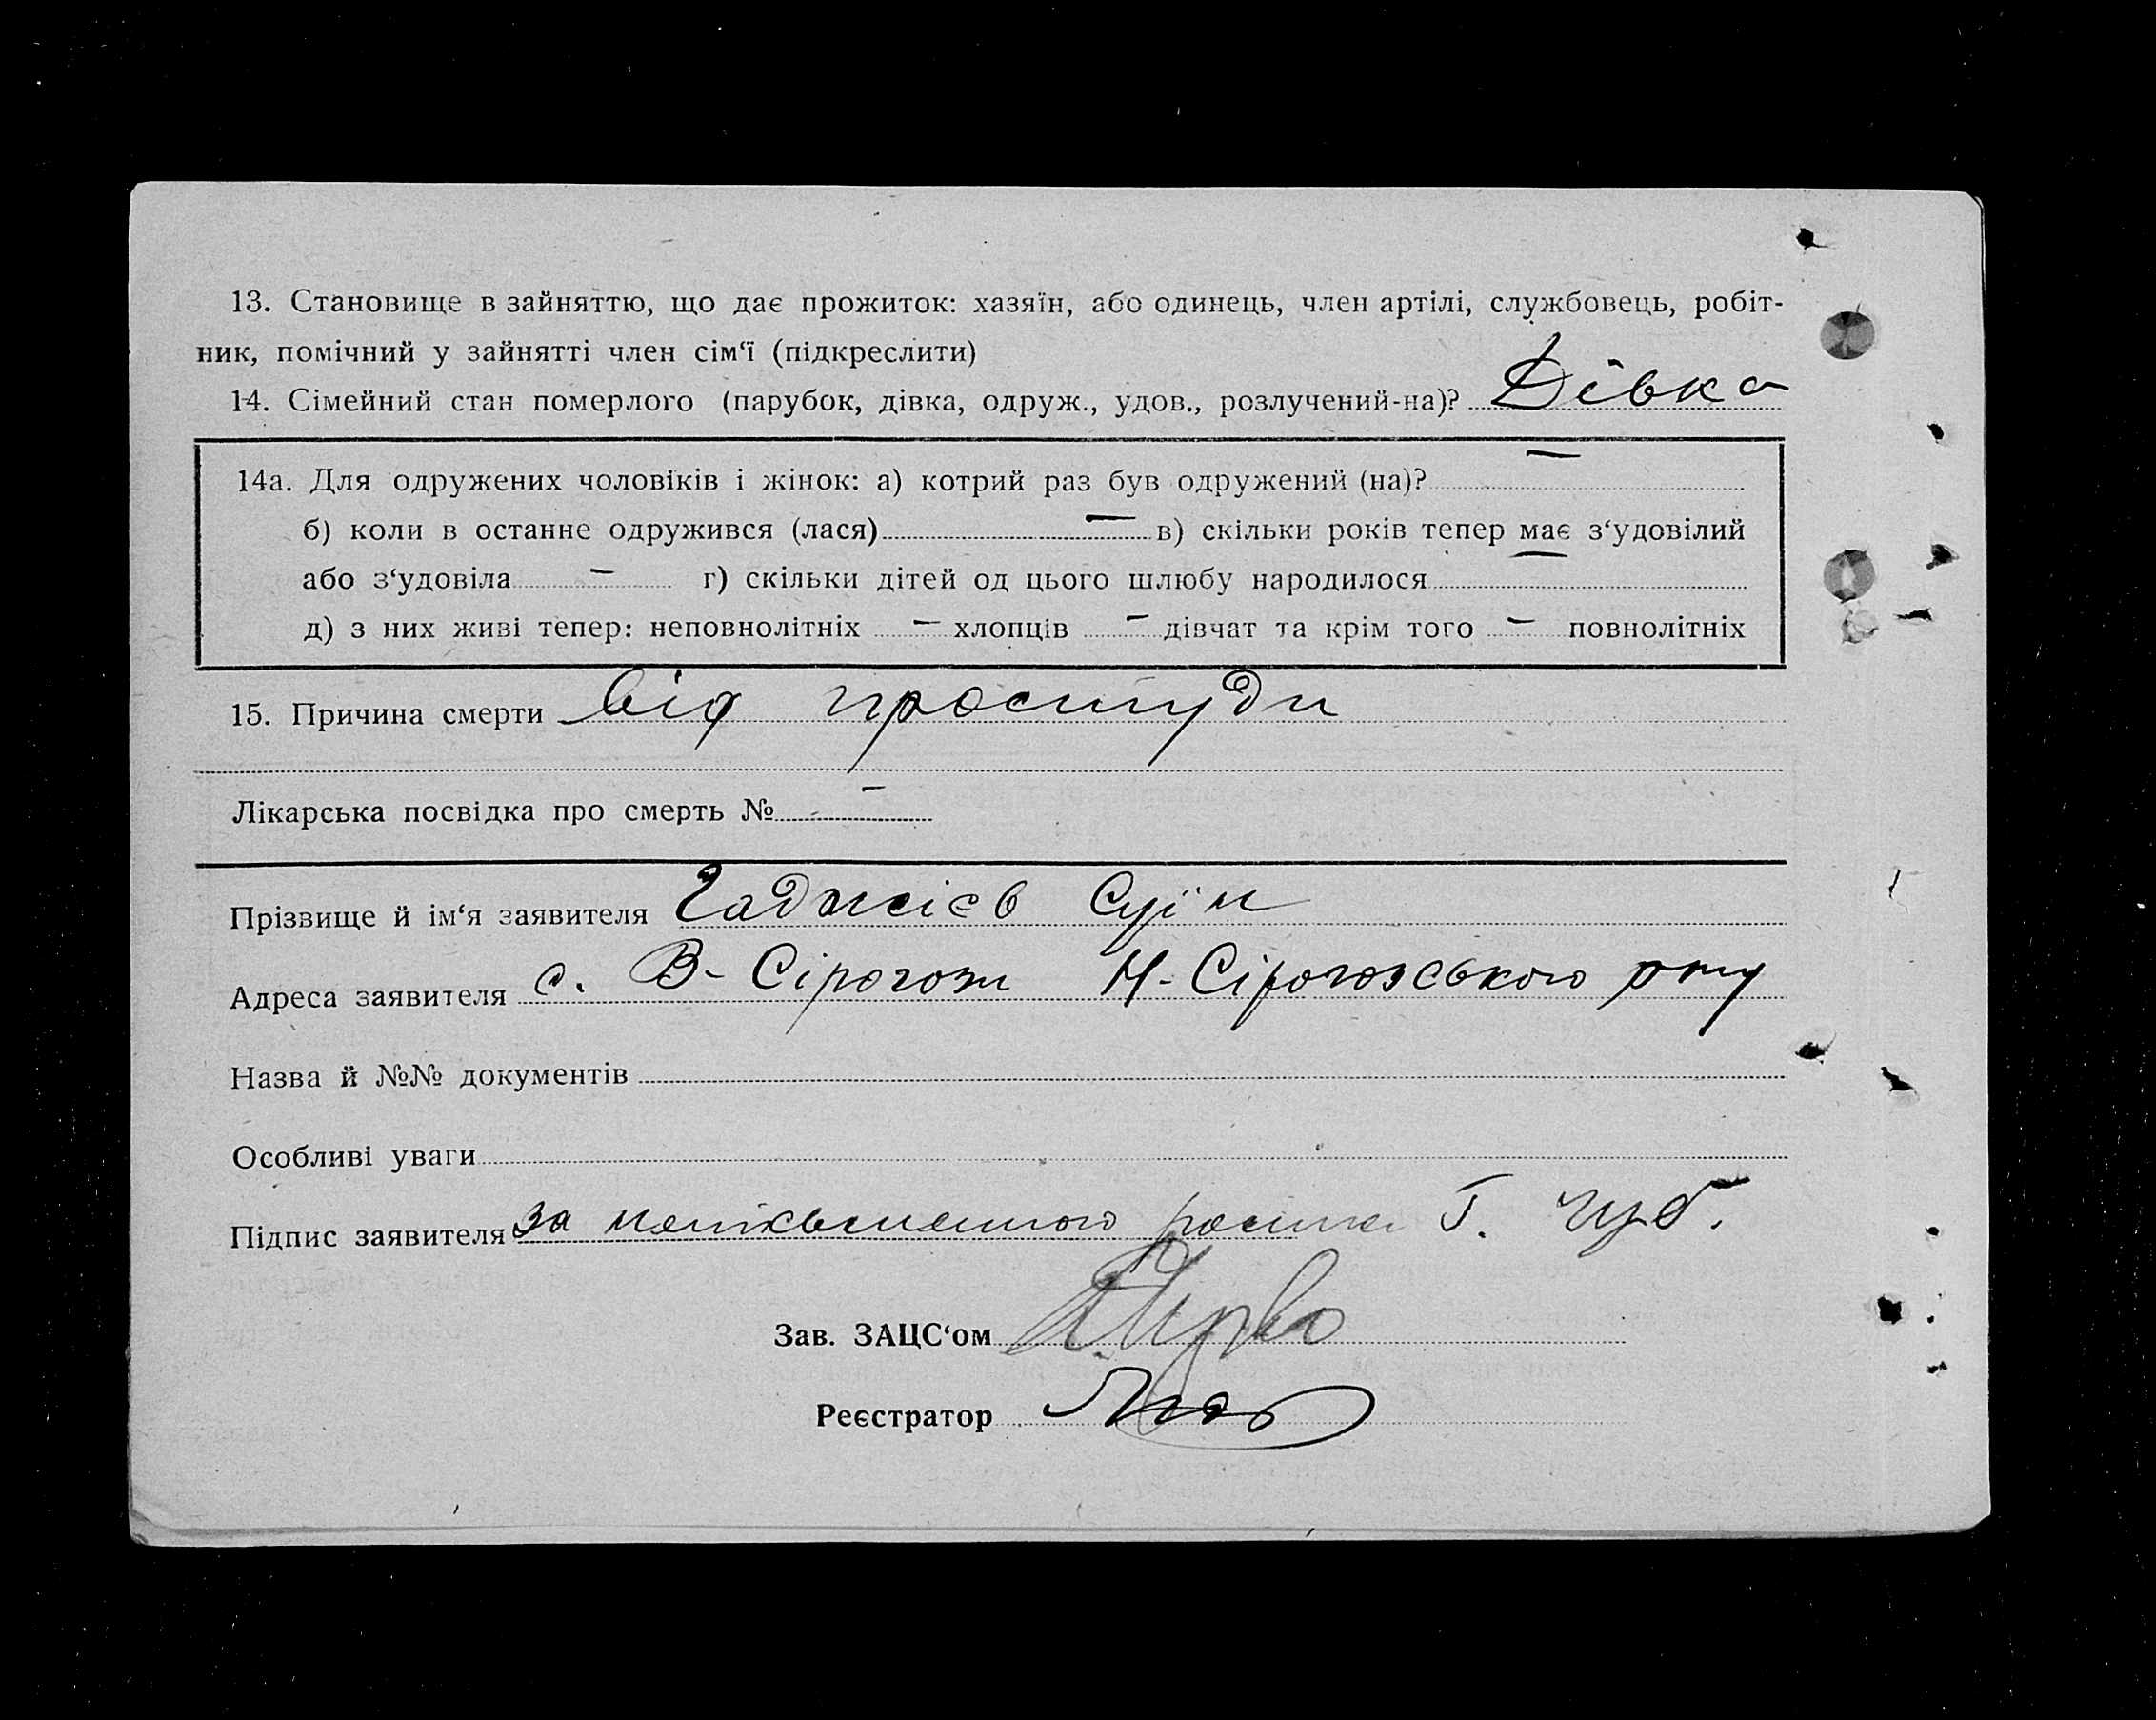 13. Становище в зайняттю, що дає прожиток: хазяїн, або одинець, член артілі, службовець, робіт-
ник, помічний у зайнятті член сім‘ї (підкреслити)
14. Сімейний стан померлого (парубок, дівка, одруж., удов., розлучений-на)? Дівка
14а. Для одружених чоловіків і жінок: а) котрий раз був одружений (на)? —
б) коли в останнє одружився (лася) — в) скільки років тепер має з‘удовілий
або з‘удовіла — г) скільки дітей од цього шлюбу народилося —
д) з них живі тепер: неповнолітніх — хлопців — дівчат та крім того — повнолітніх
15. Причина смерти від простуди
Лікарська посвідка про смерть № —
Прізвище й ім‘я заявителя Гаджієв
Адреса заявителя с. В-Сірогози Н-Сірогозського р-ну
Назва й №№ документів
Особливі уваги
Підпис заявителя за
Зав. ЗАЦС‘ом
Реєстратор